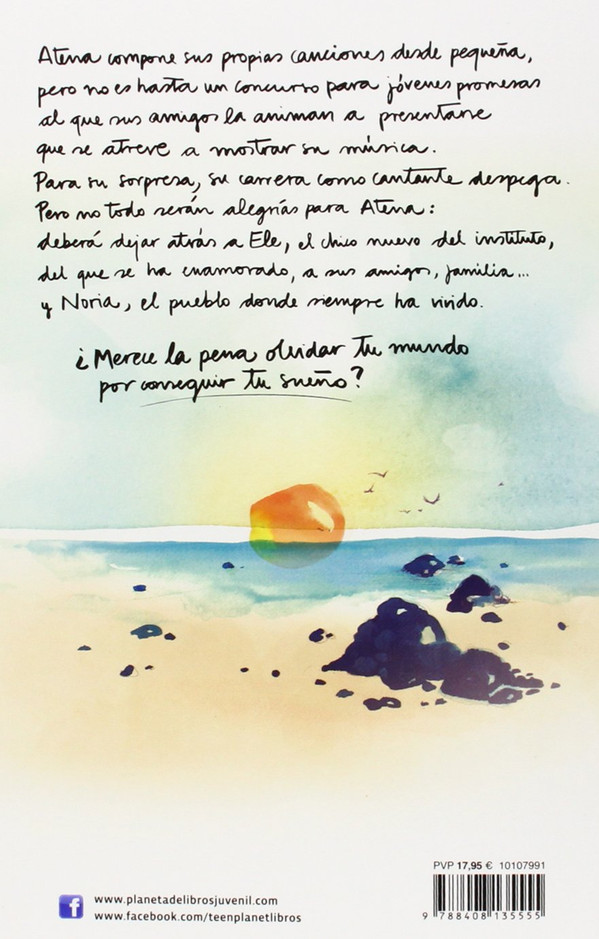 Atena compone sus propias canciones desde pequeña,
pero no es hasta un concurso para jóvenes promesas
al que sus amigos la animan a presentarse
que se atreve a mostrar su música.
Para su sorpresa, su carrera como cantante despega.
Pero no todo serán alegrías para Atena:
deberá dejar atrás a Ele, el chico nuevo del instituto,
del que se ha enamorado, a sus amigos, familia...
y Noria, el pueblo donde siempre ha vivido.
¿Merece la pena olvidar tu mundo
por conseguir tu sueño?
PVP 17,95 € 10107991
9 788408 135555
f www.planetadelibrosjuvenil.com
www.facebook.com/teenplanetlibros